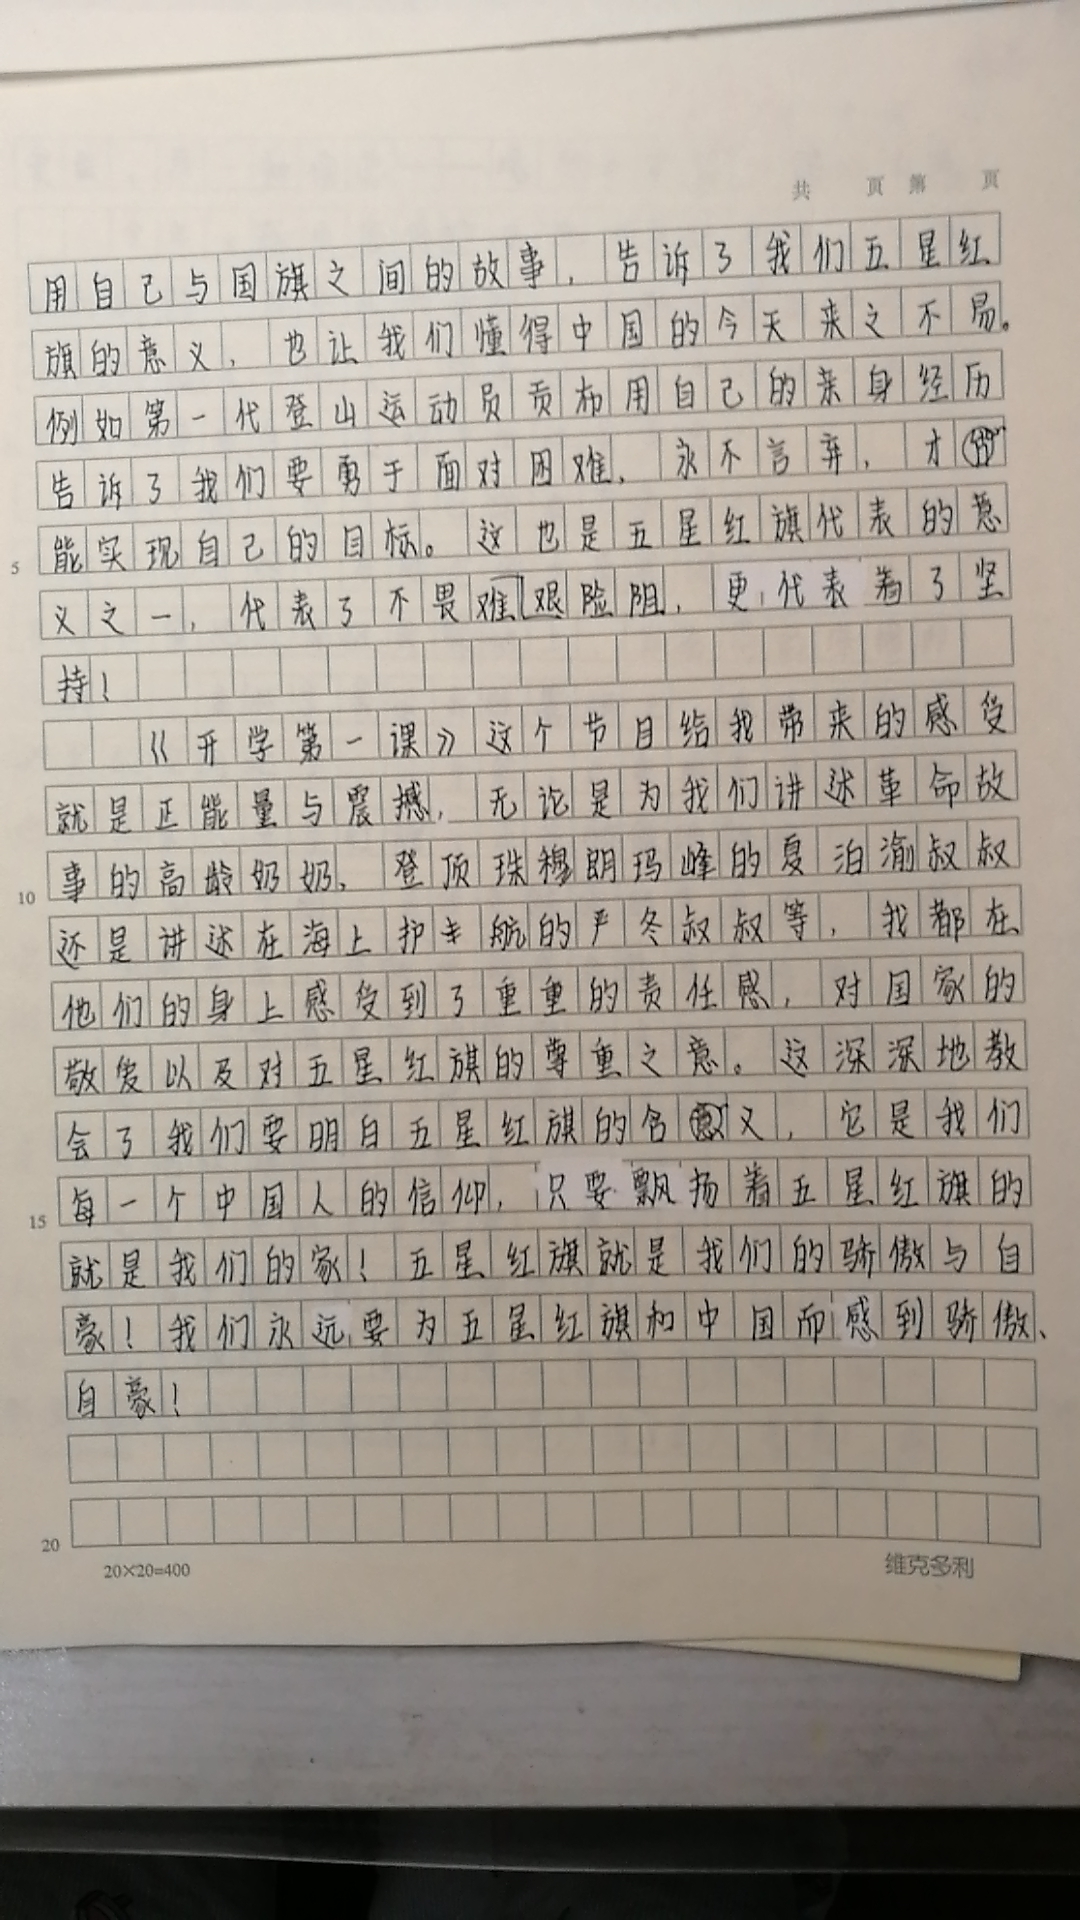 共 页 第 页
用自己与国旗之间的故事，告诉了我们五星红
旗的意义，也让我们懂得中国的今天来之不易。
例如第一代登山运动员贡布用自己的亲身经历
告诉了我们要勇于面对困难，永不言弃，才
5 能实现自己的目标。这也是五星红旗代表的意
义之一，代表了不畏难艰险阻，更代表着了坚
持！
《开学第一课》这个节目给我带来的感受
就是正能量与震撼，无论是为我们讲述革命故
10 事的高龄奶奶、登顶珠穆朗玛峰的夏泊渝叔叔
还是讲述在海上护航的严冬叔叔等，我都在
他们的身上感受到了重重的责任感，对国家的
敬爱以及对五星红旗的尊重之意。这深深地教
会了我们要明白五星红旗的含义，它是我们
15 每一个中国人的信仰，只要飘扬着五星红旗的
就是我们的家！五星红旗就是我们的骄傲与自
豪！我们永远要为五星红旗和中国而感到骄傲、
自豪！
20
20×20=400 维克多利